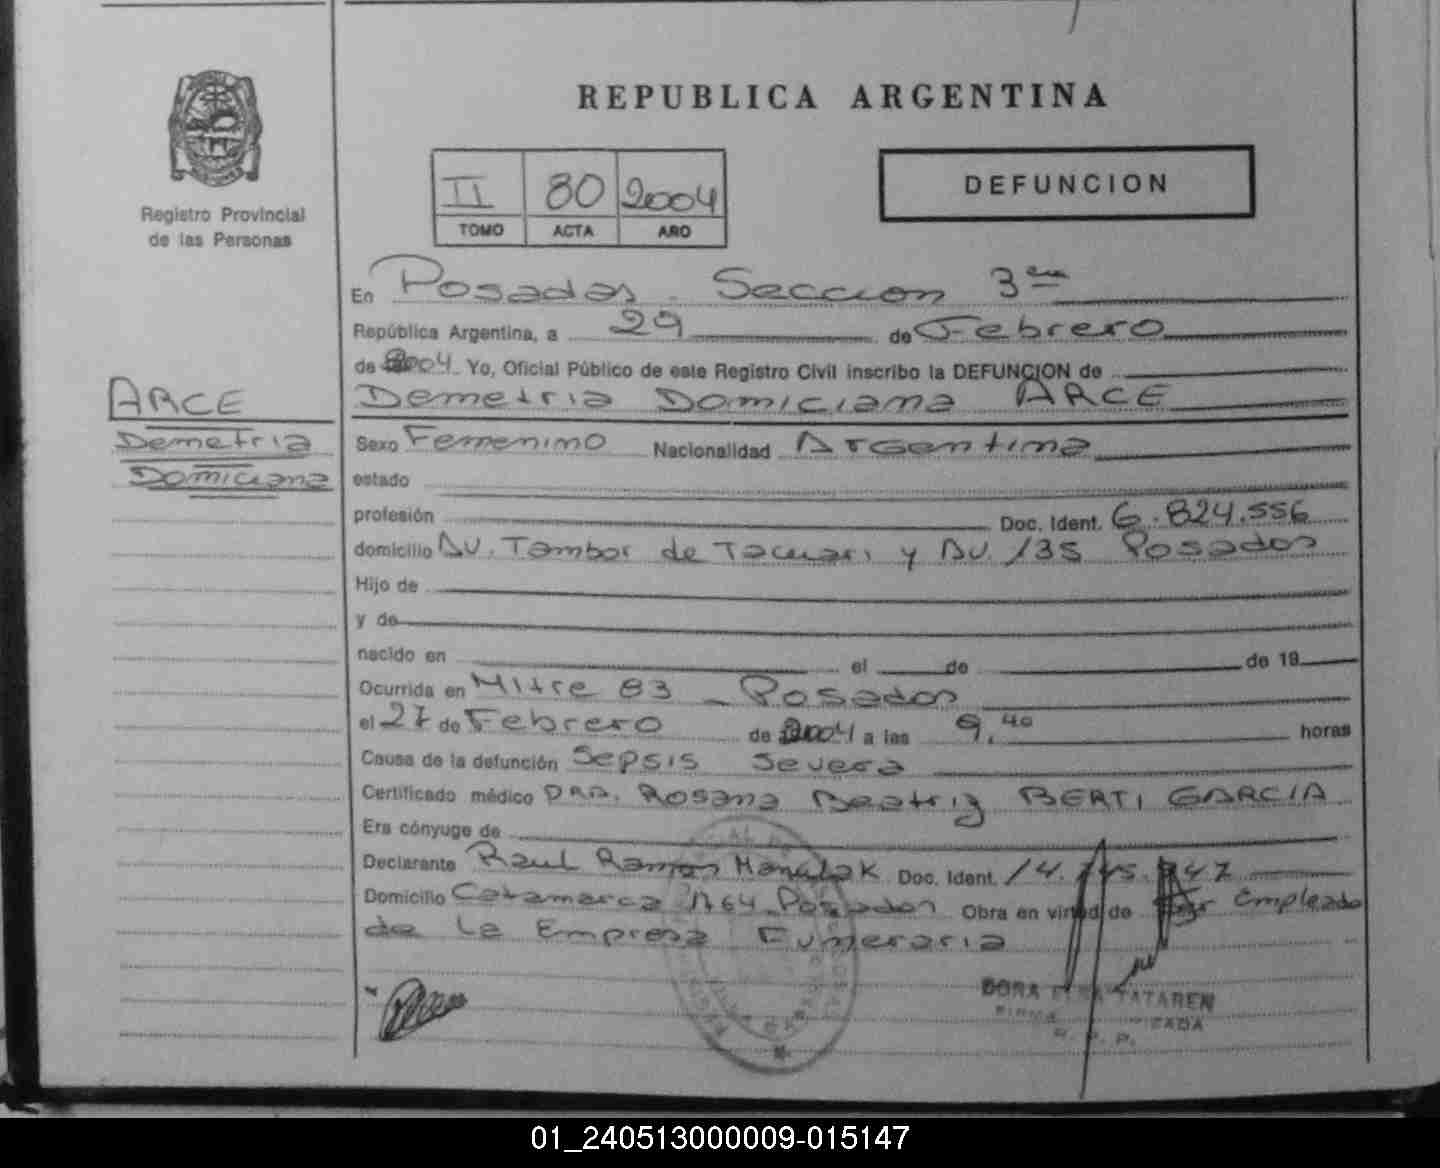 REPUBLICA ARGENTINA
Registro Provincial
de las Personas
II 80 2004
TOMO ACTA AÑO
DEFUNCION
En Posadas. Sección 3era
República Argentina, a 29 de Febrero
de 2004. Yo, Oficial Público de este Registro Civil inscribo la DEFUNCION de
ARCE
Demetria
Domiciana
Demetria Domiciana ARCE
Sexo Femenino Nacionalidad Argentina
estado
profesión Doc. Ident. 6.824.556
domicilio AV. Tambor de Tacuari y AV. 135 Posadas
Hijo de
y de
nacido en el de de 19
Ocurrida en Mitre 83 - Posadas
el 27 de Febrero de 2004 a las 9,40 horas
Causa de la defunción Sepsis Severa
Certificado médico DRA. Rosana Beatriz BERTI GARCIA
Era cónyuge de
Declarante Raul Ramon Doc. Ident. 14.
Domicilio Catamarca Posadas Obra en virtud de Ser Empleado
de la Empresa Funeraria
DORA TATAREN
R. P. P.
01_240513000009-015147